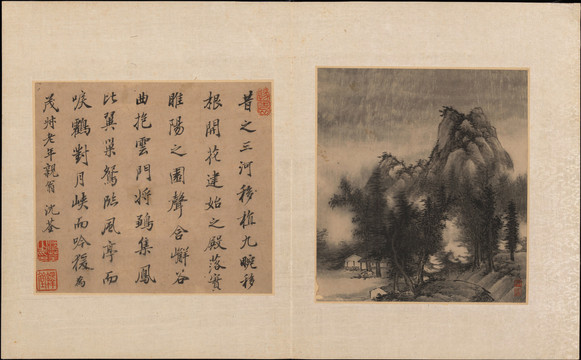 昔之三河徙植九畹移
根開花建始之殿落實
睢陽之園聲含嶰谷
曲抱雲門將鶵集鳳
比翼巢鴛臨風亭而
唳鶴對月峽而吟猨為
老年親翁 沈荃